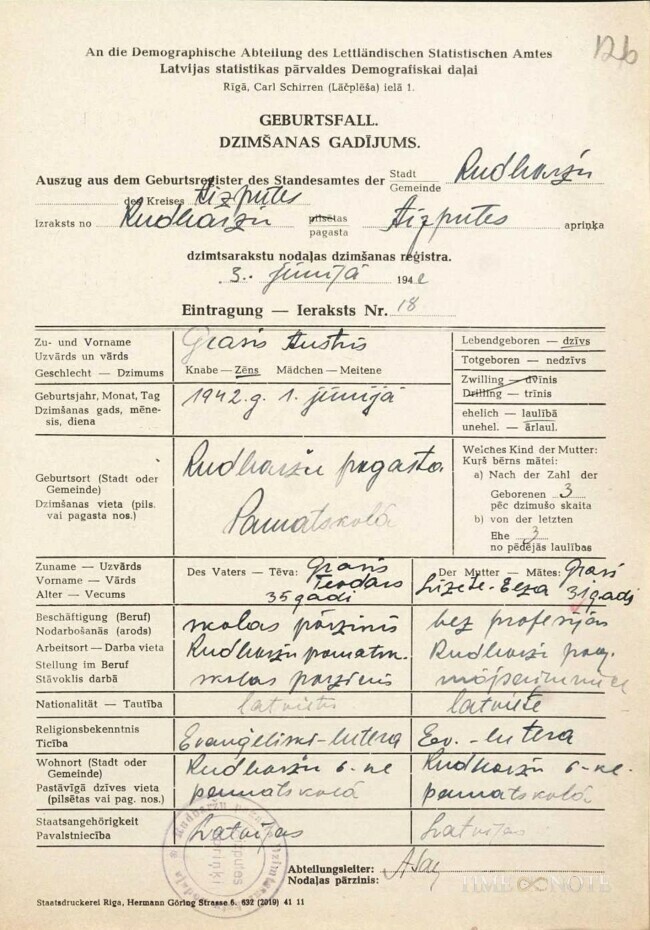 12b
An die Demographische Abteilung des Lettländischen Statistischen Amtes
Latvijas statistikas pārvaldes Demografiskai daļai
Rīgā, Carl Schirren (Lāčplēša) ielā 1.
GEBURTSFALL.
DZIMŠANAS GADĪJUMS.
Auszug aus dem Geburtsregister des Standesamtes der Stadt Gemeinde Rudbaržu
des Kreises Aizputes
Izraksts no Rudbaržu pilsētas pagasta Aizputes apriņķa
dzimtsarakstu nodaļas dzimšanas reģistra.
3. jūnijā 1942
Eintragung — Ieraksts Nr. 18
Zu- und Vorname
Uzvārds un vārds
Geschlecht — Dzimums
Grasis Austris
Knabe — Zēns Mädchen — Meitene
Lebendgeboren — dzīvs
Totgeboren — nedzīvs
Zwilling — dvīnis
Drilling — trīnis
ehelich — laulībā
unehel. — ārlaul.
Geburtsjahr, Monat, Tag
Dzimšanas gads, mēne-
sis, diena
1942.g. 1. jūnijā
Geburtsort (Stadt oder
Gemeinde)
Dzimšanas vieta (pils.
vai pagasta nos.)
Rudbaržu pagasta
Pamatskolā
Welches Kind der Mutter:
Kurš bērns mātei:
a) Nach der Zahl der
Geborenen 3
pēc dzimušo skaita
b) von der letzten
Ehe 3
no pēdējās laulības
Zuname — Uzvārds
Vorname — Vārds
Alter — Vecums
Des Vaters — Tēva: Grasis
Teodors
35 gadi
Der Mutter — Mātes: Grasi
Lizete-Elza 31 gadi
Beschäftigung (Beruf)
Nodarbošanās (arods)
skolas pārzinis
bez profesijas
Arbeitsort — Darba vieta
Rudbaržu pamatsk.
Rudbaržu pag.
Stellung im Beruf
Stāvoklis darbā
skolas pārzinis
mājsaimniece
Nationalität — Tautība
latvietis
latviete
Religionsbekenntnis
Ticība
Evaņģeliski-lutera
Ev.-lutera
Wohnort (Stadt oder
Gemeinde)
Pastāvīgā dzīves vieta
(pilsētas vai pag. nos.)
Rudbaržu 6-kl.
pamatskolā
Rudbaržu 6-kl.
pamatskolā
Staatsangehörigkeit
Pavalstniecība
Latvijas
Latvijas
Abteilungsleiter:
Nodaļas pārzinis:
Staatsdruckerei Riga, Hermann Göring Strasse 6. 632 (2019) 41 11
TIMENOTE